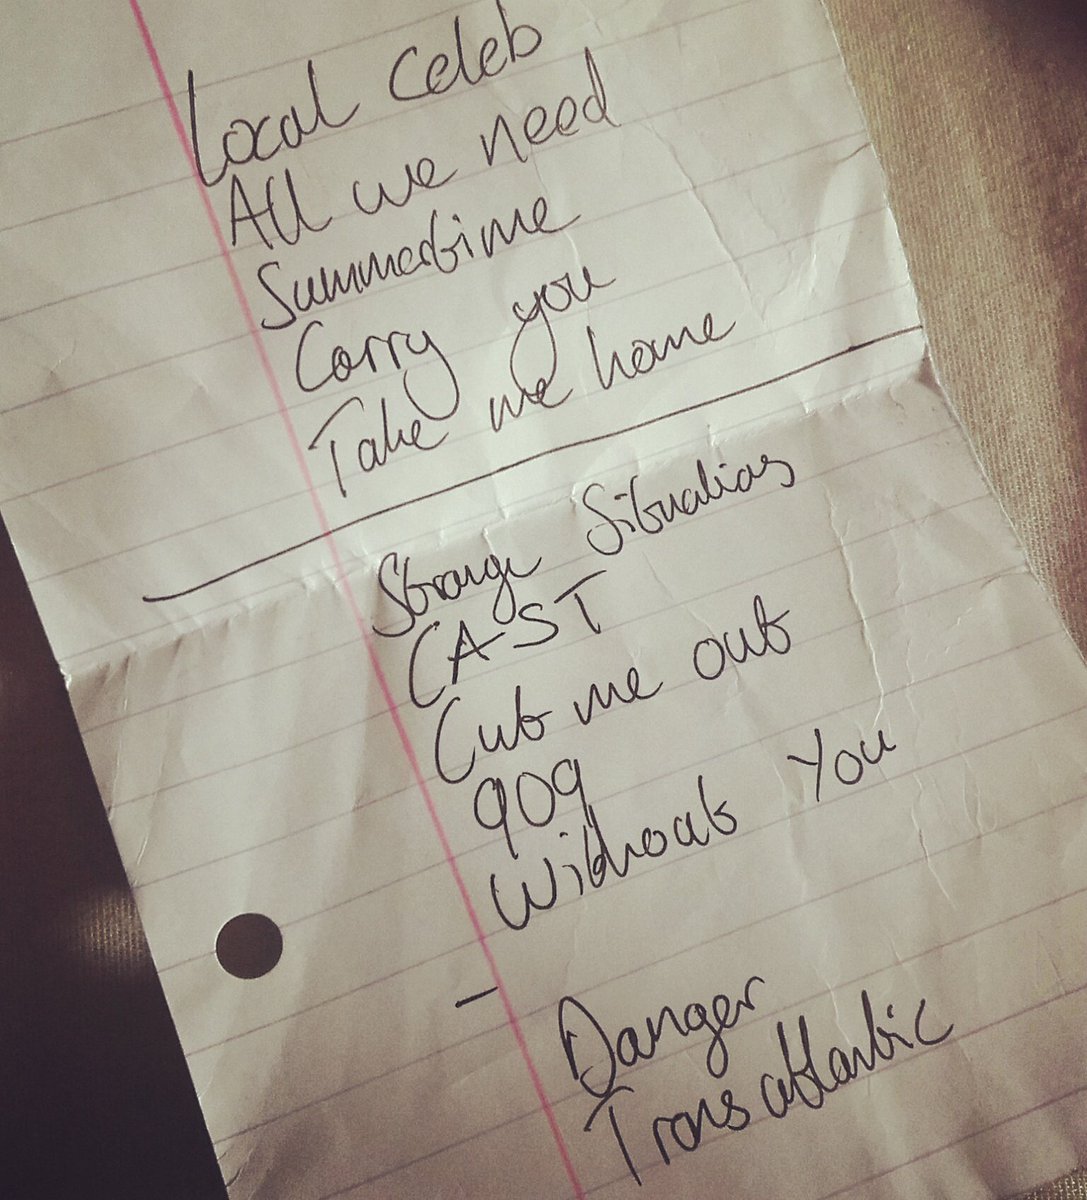 Local Celeb
All we need
Summertime
Carry you
Take me home
Strange Situations
CAST
Cut me out
909
Without You
Danger
Transatlantic